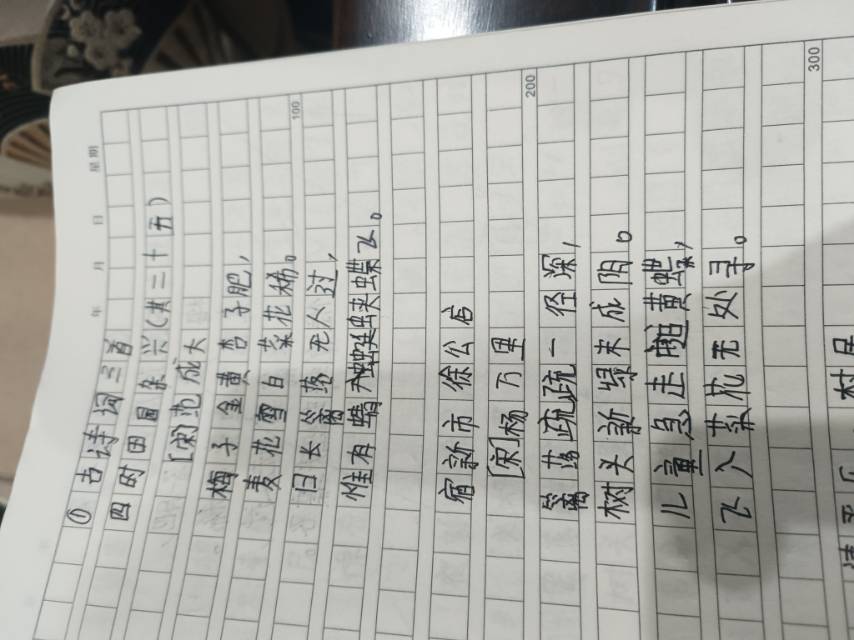 年 月 日 星期
① 古诗词三首
四时田园杂兴(其二十五)
[宋]范成大
梅子金黄杏子肥,
麦花雪白菜花稀。
日长篱落无人过,
惟有蜻蜓蛱蝶飞。
100
宿新市徐公店
[宋]杨万里
200
篱落疏疏一径深,
树头新绿未成阴。
儿童急走追黄蝶,
飞入菜花无处寻。
300
村居
清平乐